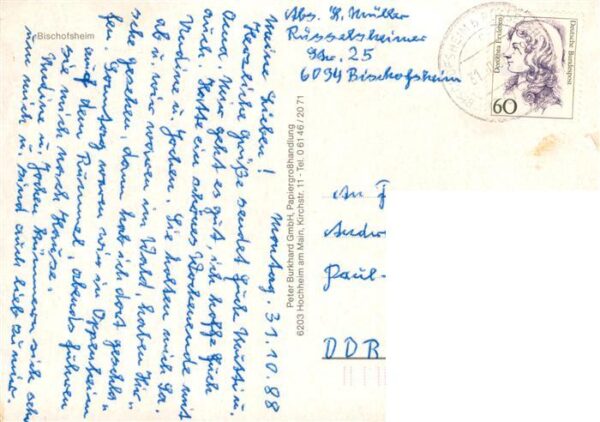 Bischofsheim
Montag. 31.10.88
Meine Lieben!
Herzliche Grüße sendet Eure Mutti u.
Oma. Mir geht es gut, ich hoffe Euch
auch. Hatte ein schönes Wochenende mit
Nadine u. Jochen. Sie holten mich Sa.
ab u. wir waren im Wald, haben Hir-
sche gesehen, dann hab ich dort geschla-
fen. Sonntag waren wir in Oppenheim
auf dem Rummel, abends fuhren
sie mich nach Hause.
Nadine u. Jochen kümmern sich sehr
um mich u. sind auch lieb zu mir.
Peter Burkhard GmbH, Papiergroßhandlung
6203 Hochheim am Main, Kirchstr. 11 - Tel. 0 61 46 / 20 71
Abs. H. Müller
Rüsselsheimer
Str. 25
6094 Bischofsheim
Deutsche Bundespost
Dorothea Erxleben
60
An F
Andr
Paul-
DDR